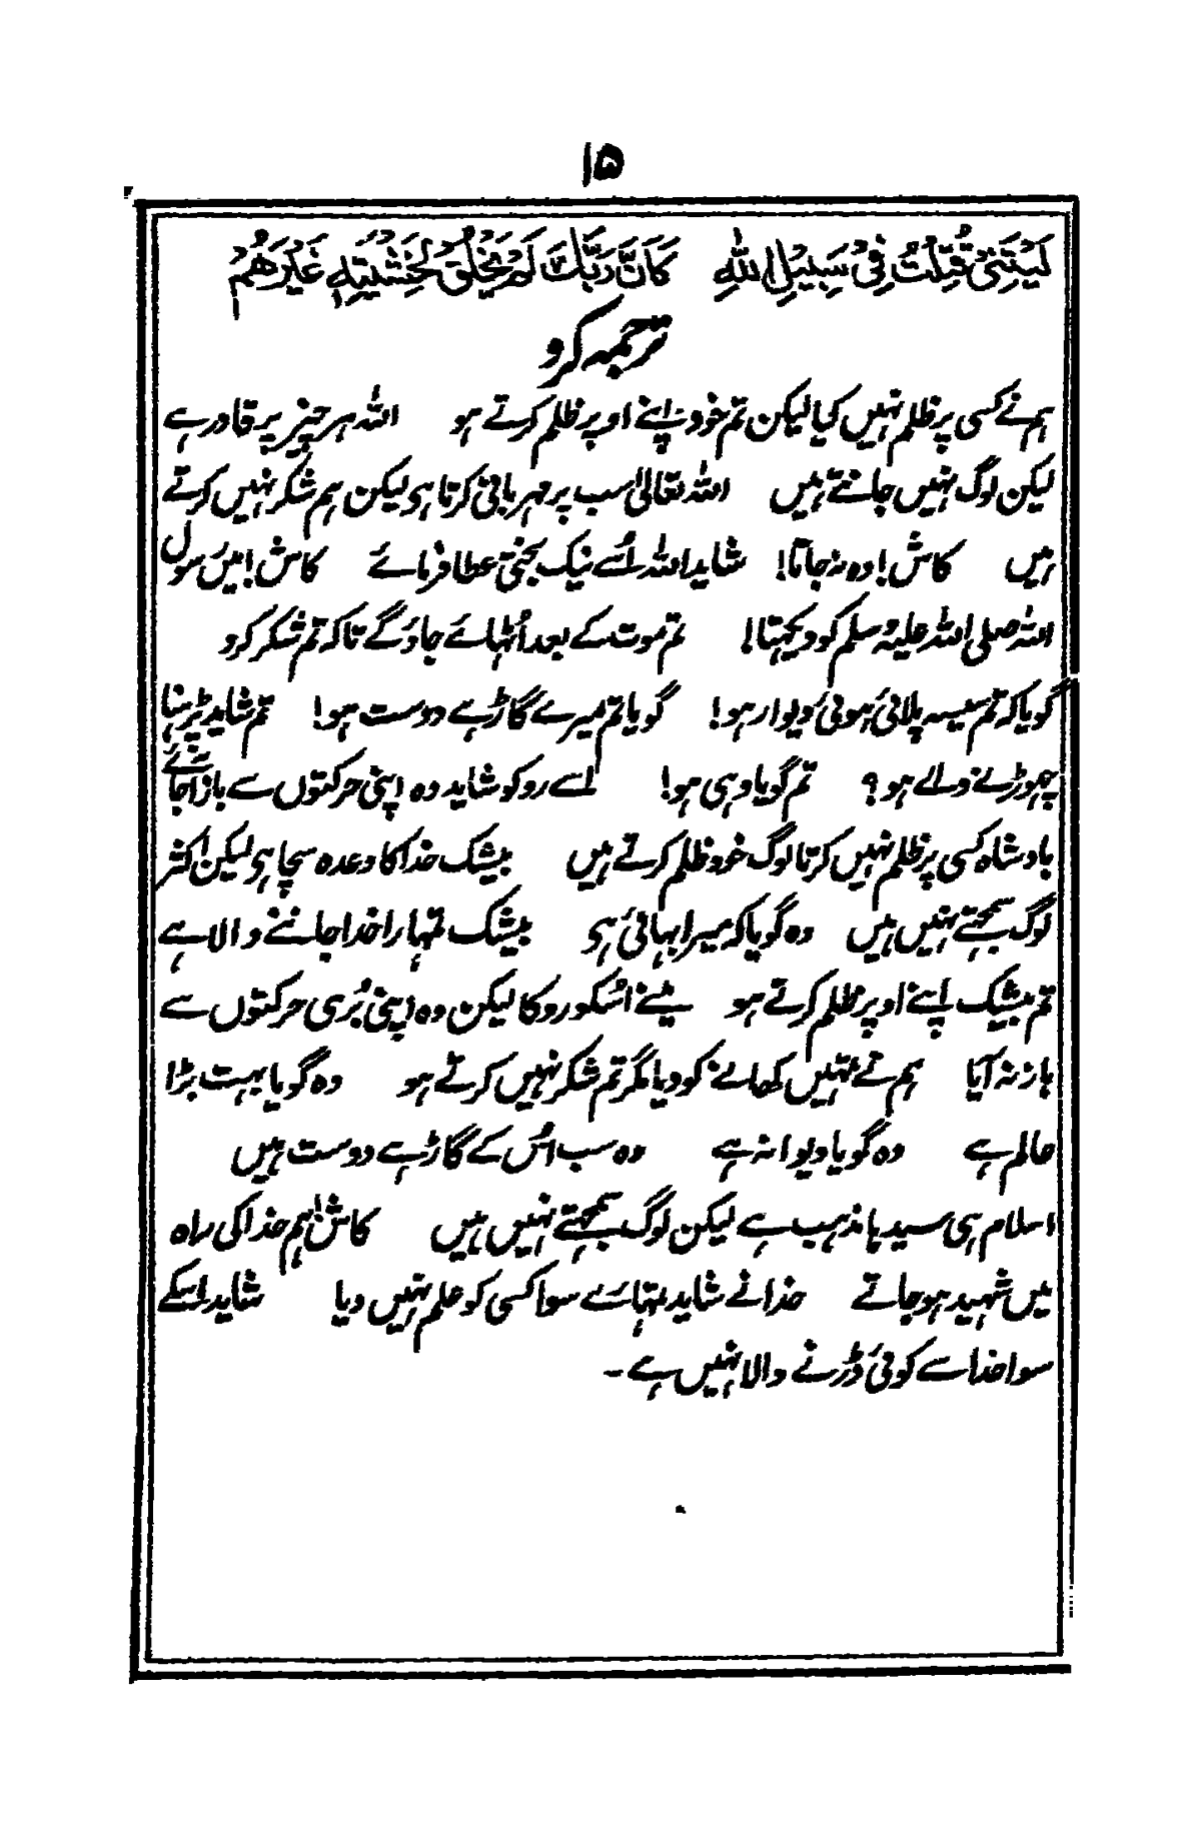 ۱۵
لَيْتَنِيْ قُتِلْتُ فِيْ سَبِيْلِ اللهِ كَاَنَّ رَبَّكَ لَمْ يَخْلُقْ لِخَشْيَتِهٖ غَيْرَهُمْ
ترجمہ کرو
ہم نے کسی پر ظلم نہیں کیا لیکن تم خود اپنے اوپر ظلم کرتے ہو اللہ ہر چیز پر قادر ہے
لیکن لوگ نہیں جانتے ہیں اللہ تعالیٰ سب پر مہربانی کرتا ہی لیکن ہم شکر نہیں کرتے
ہیں کاش! وہ نہ جاتا! شاید اللہ اُسے نیک بختی عطا فرمائے کاش! میں رسول
اللہ صلی اللہ علیہ وسلم کو دیکھتا! تم موت کے بعد اُٹھائے جاؤگے تاکہ تم شکر کرو
گویا کہ تم سیسہ پلائی ہوئی دیوار ہو! گویا تم میرے گاڑہے دوست ہو! تم شاید پڑہنا
چھوڑنے والے ہو؟ تم گویا وہی ہو! اسے روکو شاید وہ اپنی حرکتوں سے باز آجائے
بادشاہ کسی پر ظلم نہیں کرتا لوگ خود ظلم کرتے ہیں بیشک خدا کا وعدہ سچا ہی لیکن اکثر
لوگ سمجھتے نہیں ہیں وہ گویا کہ میرا بہائی ہی بیشک تمہارا خدا جاننے والا ہے
تم بیشک اپنے اوپر ظلم کرتے ہو مینے اُسکو روکا لیکن وہ اپنی بُری حرکتوں سے
باز نہ آیا ہم نے تمہیں کھانے کو دیا مگر تم شکر نہیں کرتے ہو وہ گویا بہت بڑا
عالم ہے وہ گویا دیوانہ ہے وہ سب اُس کے گاڑہے دوست ہیں
اسلام ہی سیدہا مذہب ہے لیکن لوگ سمجھتے نہیں ہیں کاش! ہم خدا کی راہ
میں شہید ہو جاتے خدا نے شاید تمہارے سوا کسی کو علم نہیں دیا شاید اسکے
سوا خدا سے کوئی ڈرنے والا نہیں ہے ۔